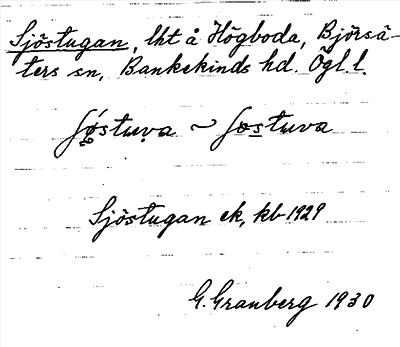 Sjöstugan, lht å Högboda, Björsä-
ters sn, Bankekinds hd. Ögl. l.
Sjöstugan ek, kb 1929
G. Granberg 1930